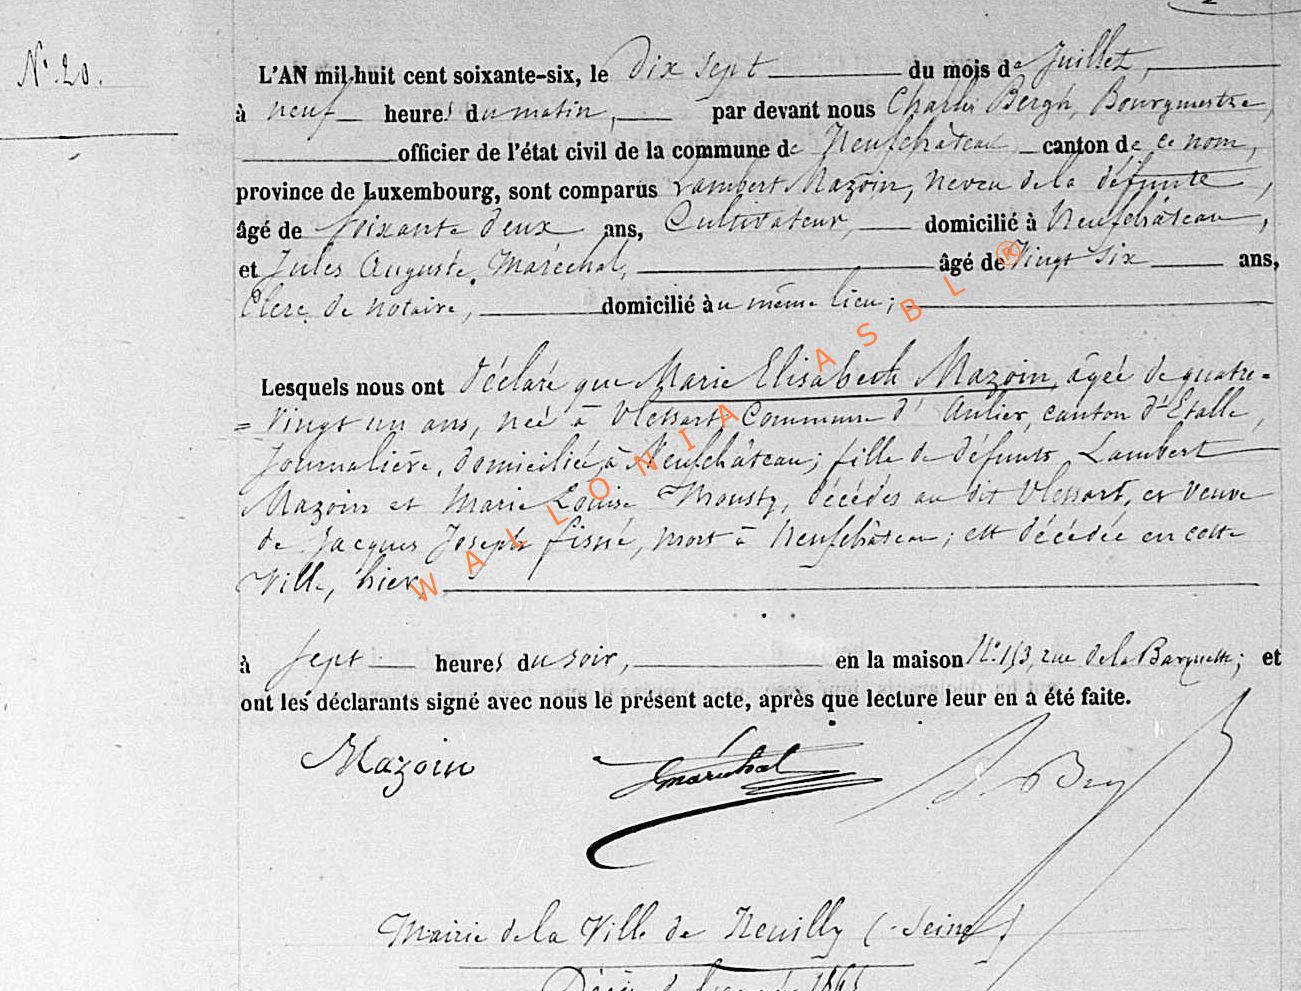 N° 20.
L'AN mil huit cent soixante-six, le Dix sept du mois de Juillet,
à neuf heures du matin, par devant nous Charles Bergh, Bourgmestre,
officier de l'état civil de la commune de Neufchâteau canton de ce nom,
province de Luxembourg, sont comparus Lambert Mazoin, neveu de la défunte,
âgé de soixante deux ans, Cultivateur, domicilié à Neufchâteau,
et Jules Auguste Maréchal, âgé de Vingt Six ans,
Clerc de notaire, domicilié au même lieu;
Lesquels nous ont déclaré que Marie Elisabeth Mazoin, âgée de quatre=
=Vingt un ans, née à Vlessart Commune d'Anlier, canton d'Etalle,
Journalière, domiciliée à Neufchâteau; fille de défunts Lambert
Mazoin et Marie Louise Mousty, décédés au dit Vlessart, et Veuve
de Jacques Joseph fisné, mort à Neufchâteau; est décédée en cette
Ville, hier,
à Sept heures du soir, en la maison N° 153, rue de la Barquette; et
ont les déclarants signé avec nous le présent acte, après que lecture leur en a été faite.
Mazoin JMaréchal
Mairie de la Ville de Neuilly (Seine)
1865
WALLONIA ASBL ®